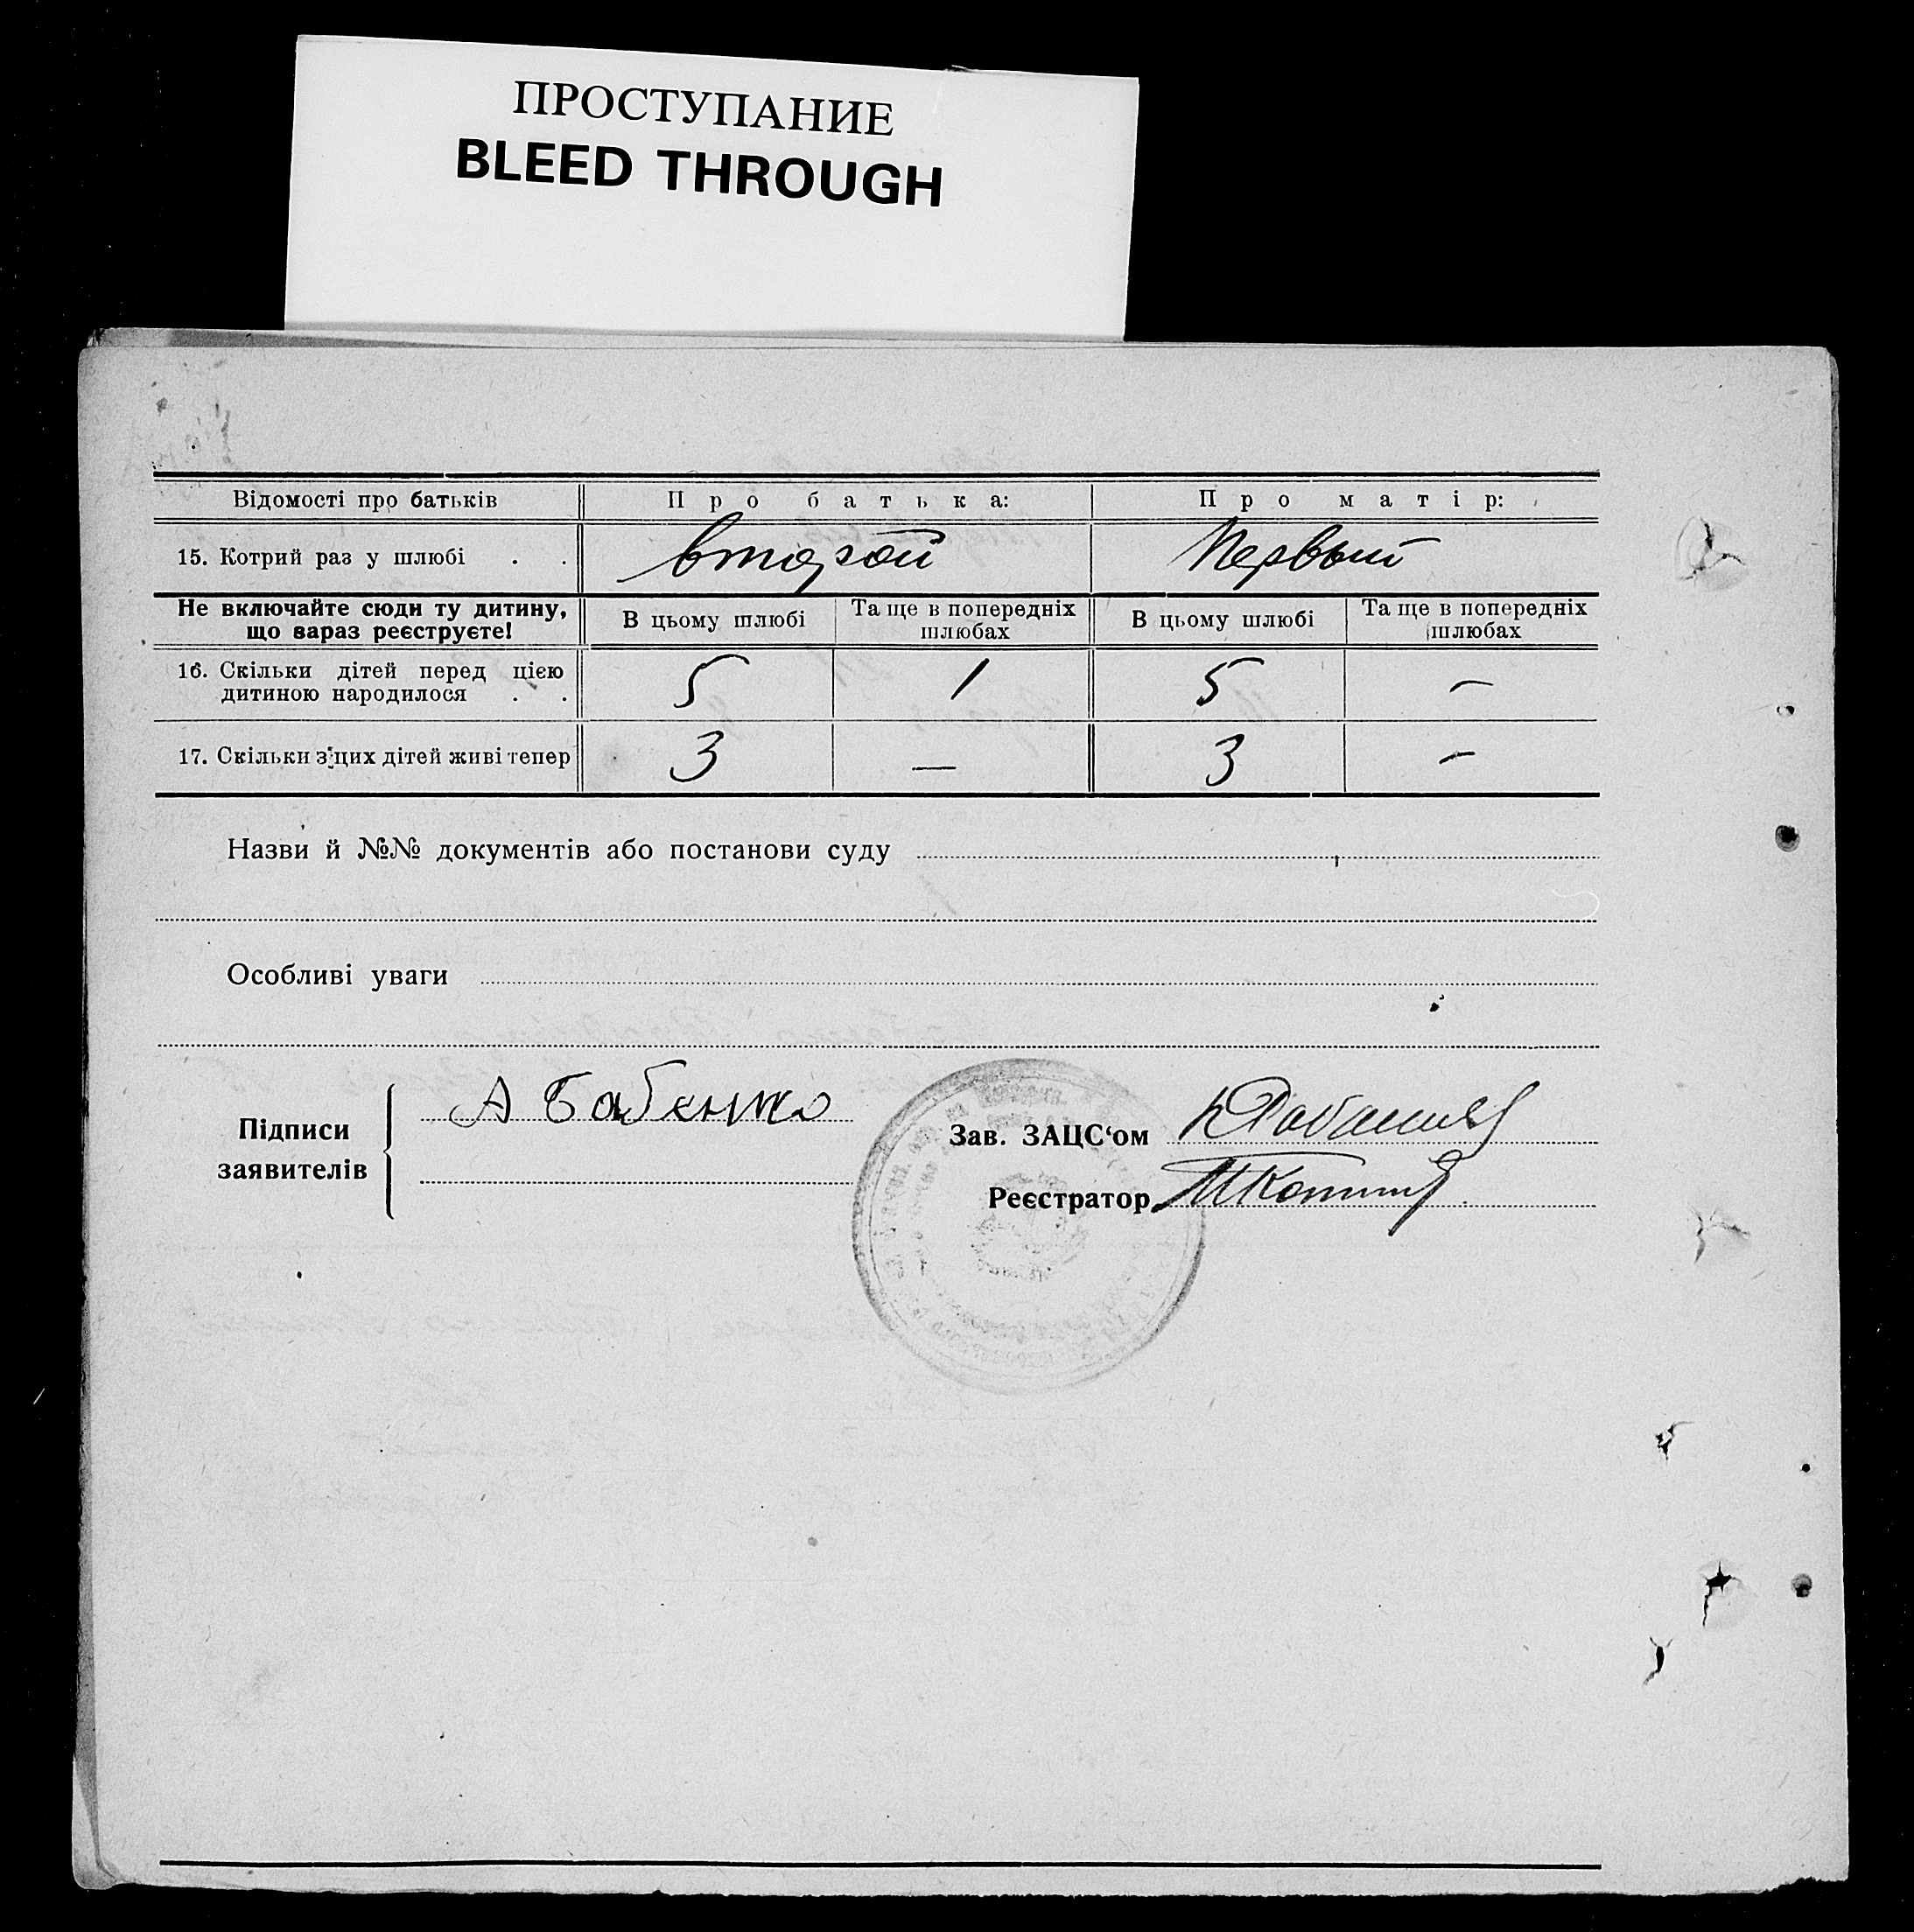 ПРОСТУПАНИЕ
BLEED THROUGH
Відомості про батьків Про батька: Про матір:
15. Котрий раз у шлюбі . . второй Первый
Не включайте сюди ту дитину, що зараз реєструєте! В цьому шлюбі Та ще в попередніх шлюбах В цьому шлюбі Та ще в попередніх шлюбах
16. Скільки дітей перед цією дитиною народилося . . 5 1 5 –
17. Скільки з цих дітей живі тепер 3 — 3 –
Назви й №№ документів або постанови суду
Особливі уваги
Підписи заявителів А Бабенко
Зав. ЗАЦС‘ом
Реєстратор